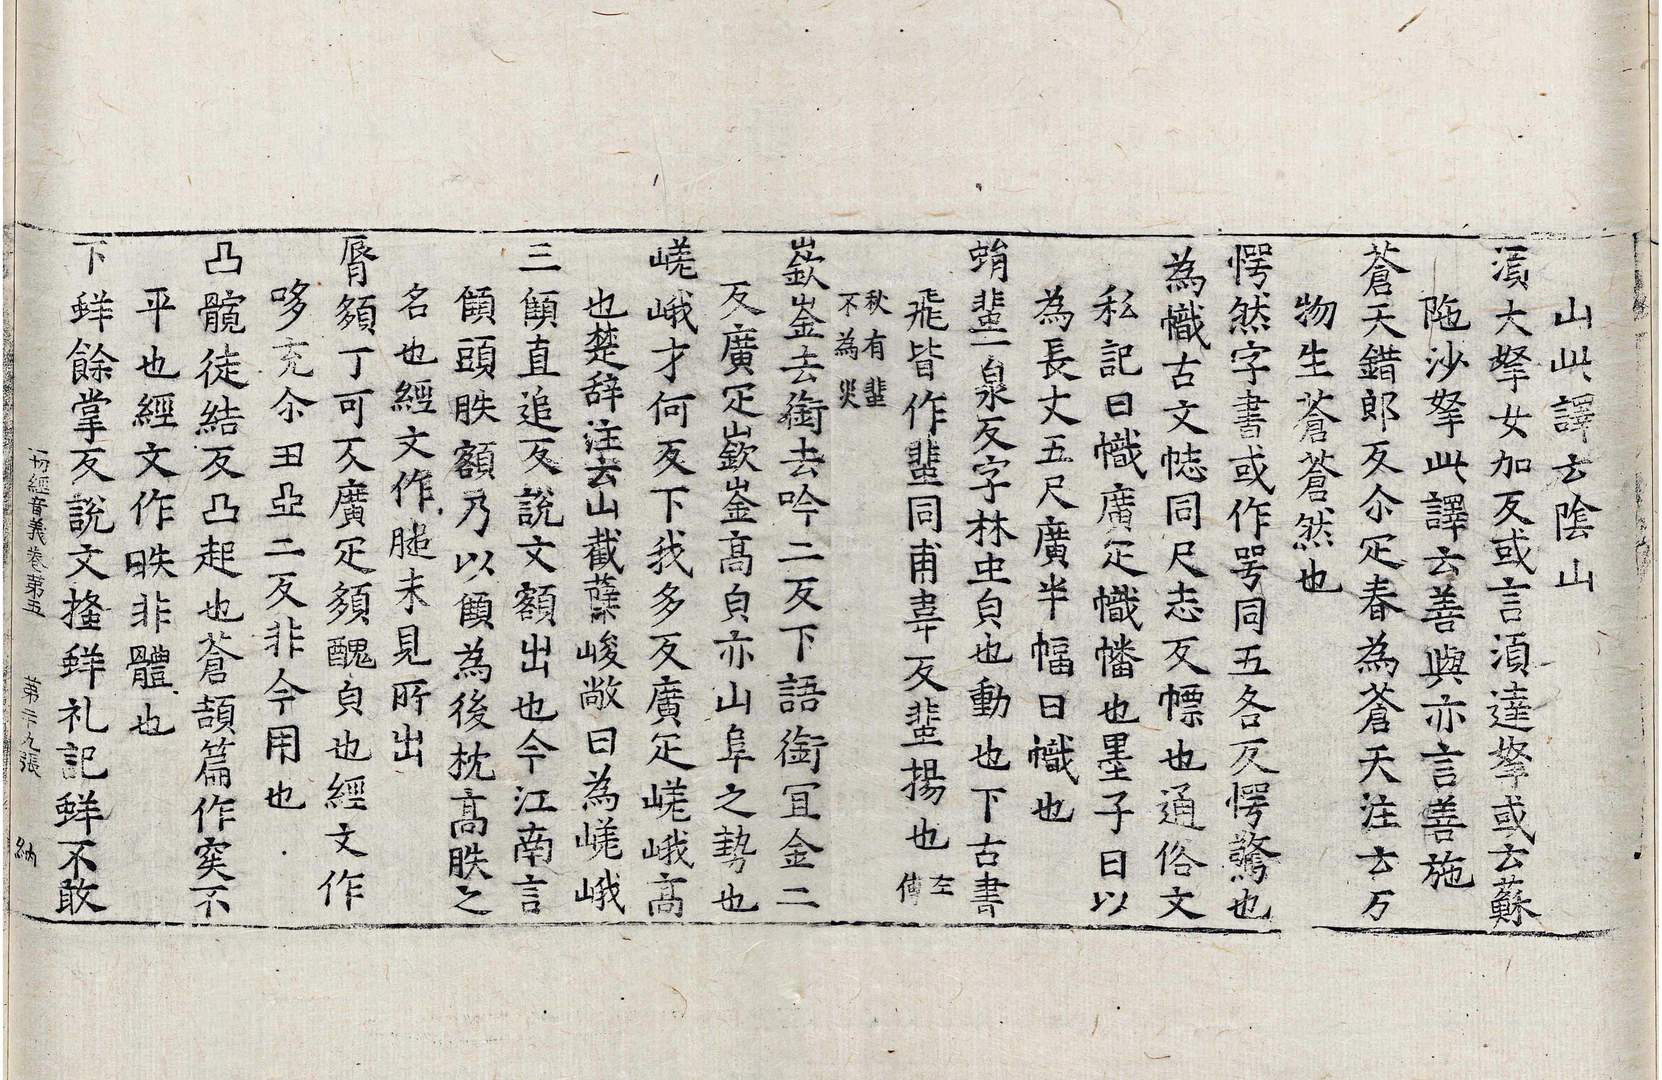 山此譯云陰山
湏大拏女加反或言湏達拏或云蘇
陁沙拏此譯云善與亦言善施
蒼天錯郎反尒疋春為蒼天注云万
物生蒼蒼然也
愕然字書或作咢同五各反愕驚也
為幟古文㤅同尺志反幖也通俗文
私記曰幟廣疋幟幡也墨子曰以
為長丈五尺廣半幅曰幟也
蜎蜚一泉反字林虫皃也動也下古書
飛皆作蜚同甫韋反蜚揚也左傳
秋有蜚
不為灾
嶔崟去銜去吟二反下語銜冝金二
反廣疋嶔崟高皃亦山阜之勢也
嵯峨才何反下我多反廣疋嵯峨高
也楚辞注云山截嶭峻敞曰為嵯峨
三顀直追反說文額出也今江南言
顀頭胅額乃以顀為後枕高胅之
名也經文作膇未見所出
脣䫂丁可反廣疋䫂醜皃也經文作
哆充尒丑亞二反非今用也
凸髖徒結反凸起也蒼頡篇作突不
平也經文作胅非體也
下蛘餘掌反說文搔蛘礼記蛘不敢
一切經音義卷第五 第二十九張 納